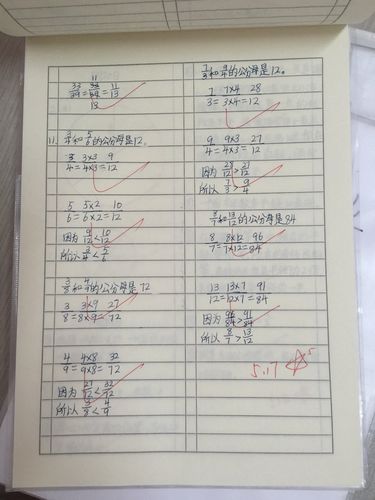 11
33/39=33/39=11/13
13
11. 3/4和5/6的公分母是12。
3/4=3×3/4×3=9/12
5/6=5×2/6×2=10/12
因为9/12<10/12
所以3/4<5/6
3/8和4/9的公分母是72
3/8=3×9/8×9=27/72
4/9=4×8/9×8=32/72
因为27/72<32/72
所以3/8<4/9
7/3和9/4的公分母是12。
7/3=7×4/3×4=28/12
9/4=9×3/4×3=27/12
因为28/12>27/12
所以7/3>9/4
8/7和13/12的公分母是84
8/7=8×12/7×12=96/84
13/12=13×7/12×7=91/84
因为96/84>91/84
所以8/7>13/12
5.17